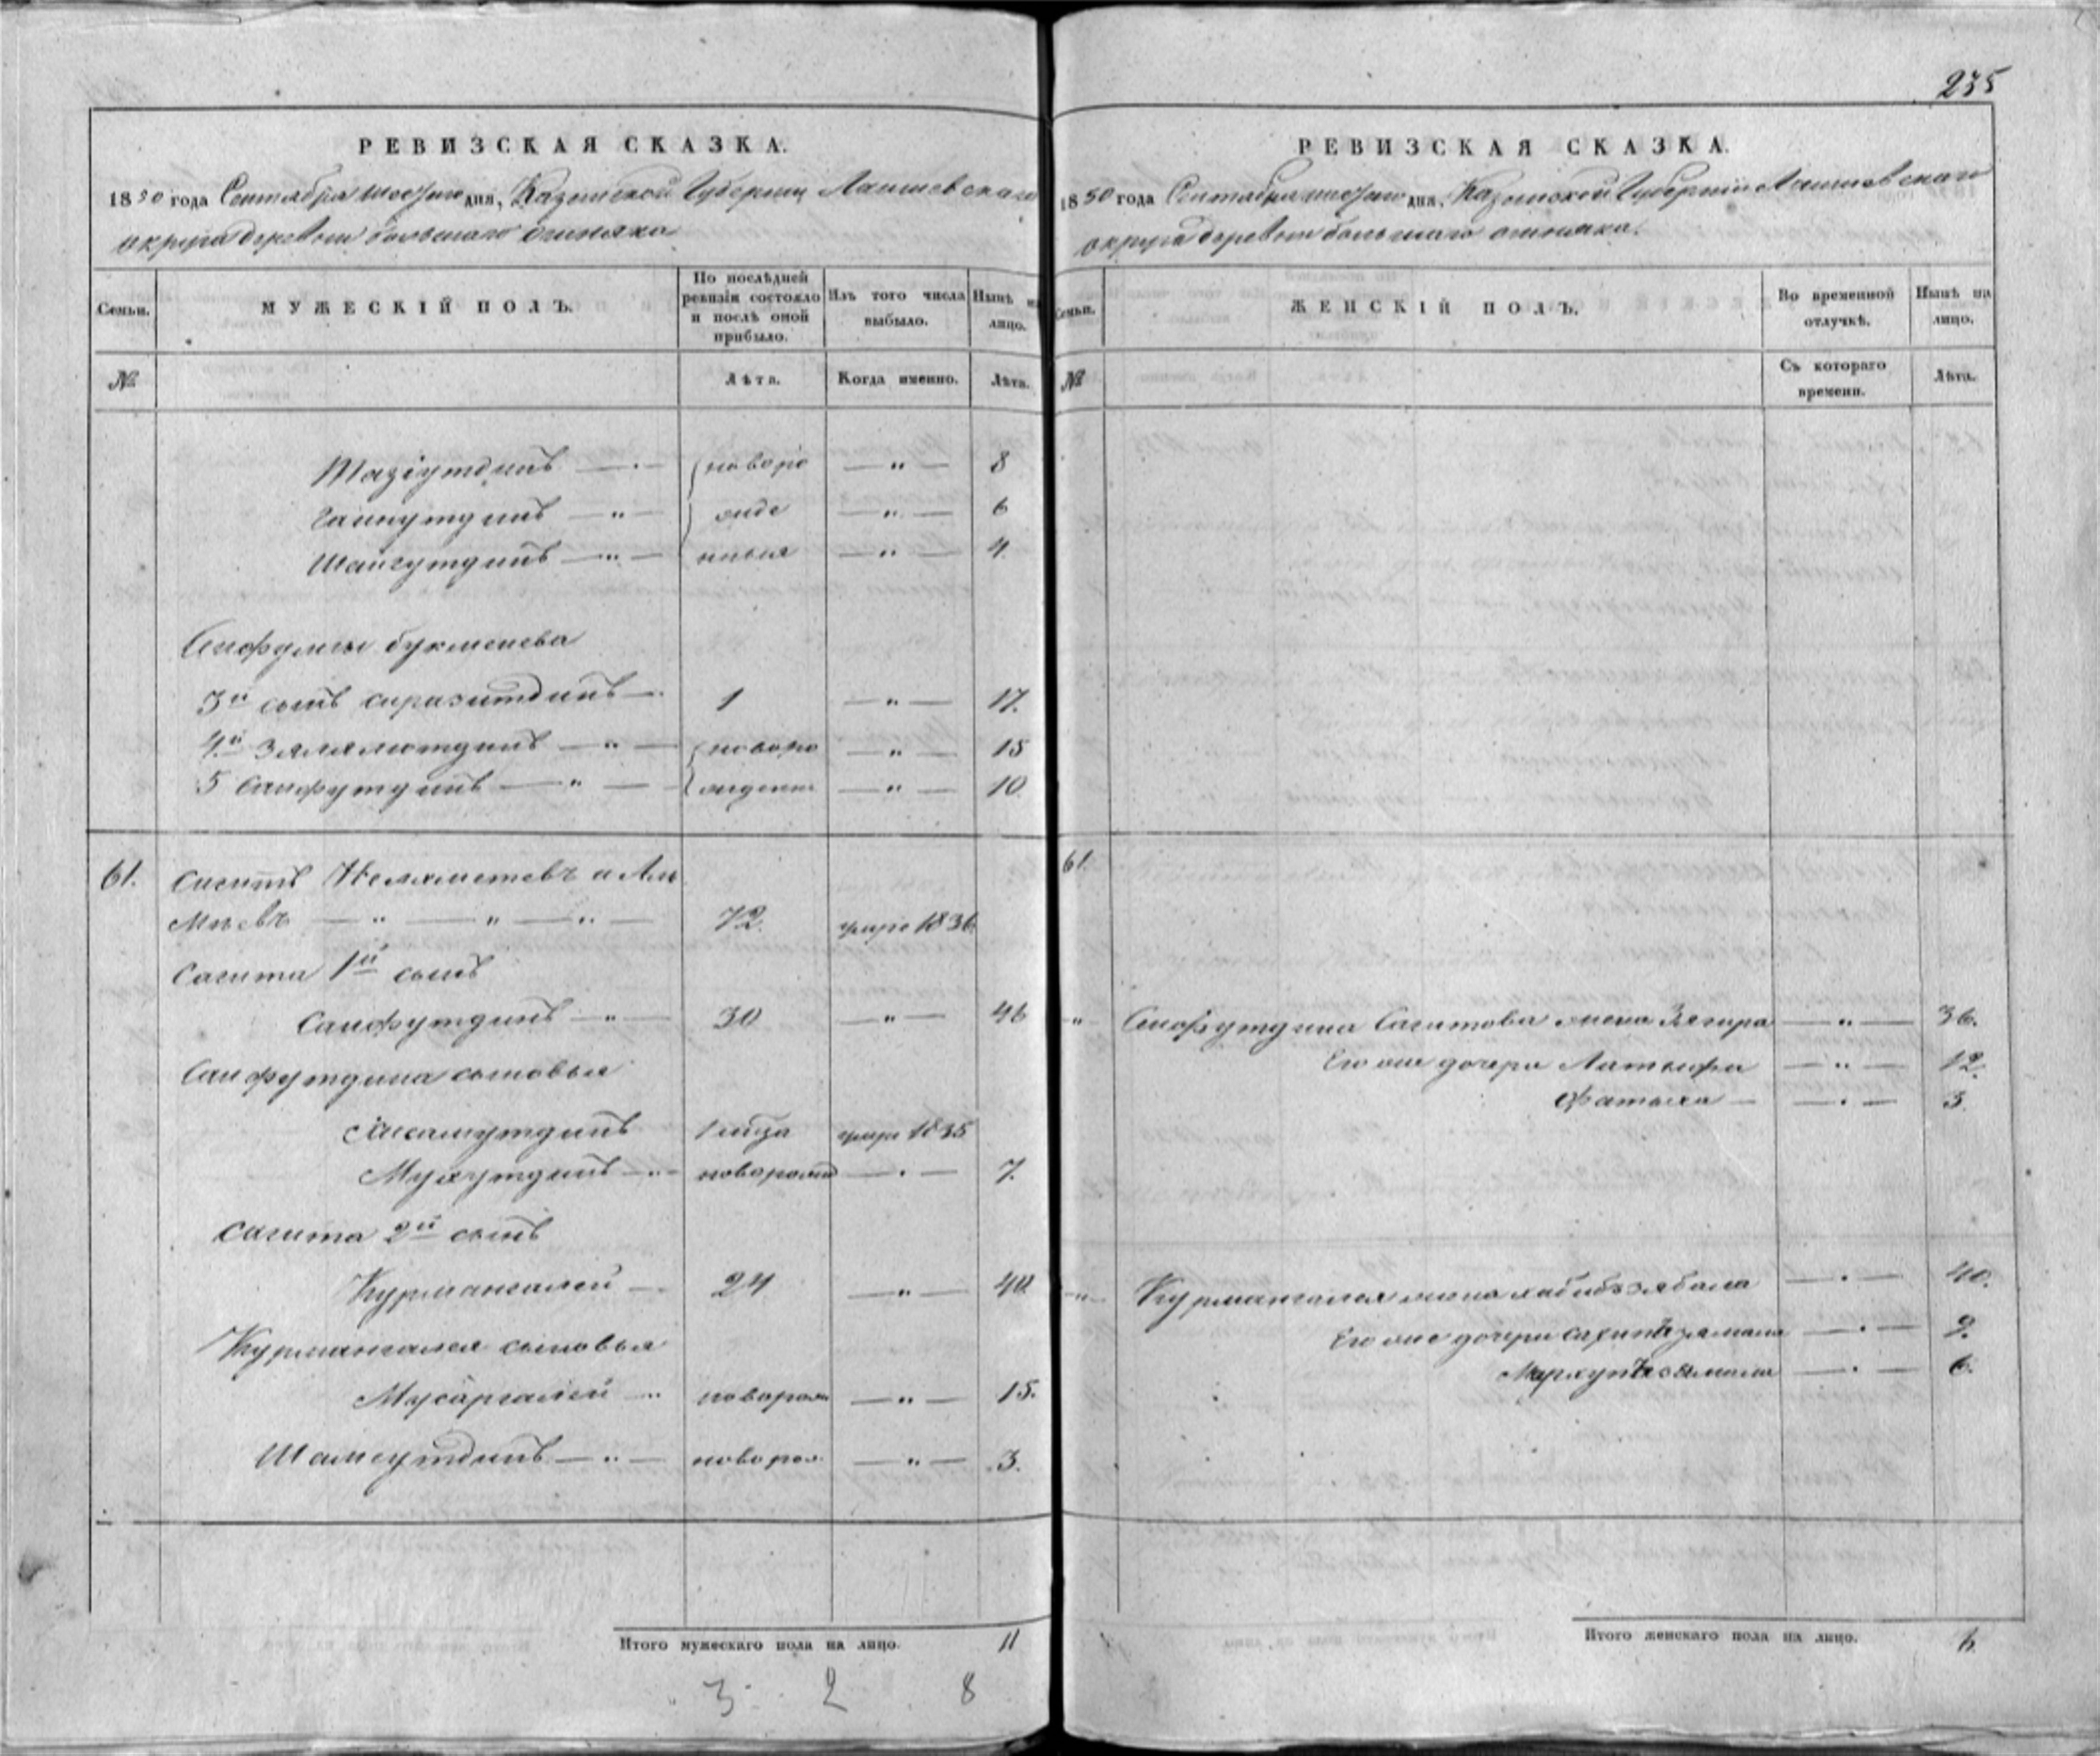 235
РЕВИЗСКАЯ СКАЗКА.
1850 года Сентября шостаго дня, Казанской Губернии Лаишевскаго
округа деревни большаго Ошняка
Семьи. МУЖЕСКІЙ ПОЛЪ. По послѣдней ревизіи состояло и послѣ оной прибыло. Изъ того числа выбыло. Нынѣ на лицо.
№ Лѣта. Когда именно. Лѣта.
Тазіутдинъ — новоро — " — 8
Гайнутдинъ — " — жде — " — 6
Шайгутдинъ — " — ныя — " — 4.
Сейфулмы букменева
3й сынъ сиразитдинъ — 1 — " — 17.
4й Зялялютдинъ — " — новоро — " — 15
5 Сайфутдинъ — " — жденны — " — 10.
61. Сагитъ Нелмаметевъ и Аль
меевъ — " — " — " — 72. умре 1836.
Сагита 1й сынъ
Сайфутдинъ — " — 30 — " — 46
Сайфутдина сыновья
умре 1835
Мухутдинъ — " — новорожд — " — 7.
Сагита 2й сынъ
Курмангалей — 24 — " — 40
Курмангалея сыновья
Мусаргалей — новорож — " — 15.
Шамсутдинъ — " — новорож — " — 3.
Итого мужескаго пола на лицо. 11
3 2 8
РЕВИЗСКАЯ СКАЗКА.
1850 года Сентября шостаго дня, Казанской Губернии Лаишевскаго
округа деревни большаго ошняка.
Семьи. ЖЕНСКІЙ ПОЛЪ. Во временной отлучкѣ. Нынѣ на лицо.
№ Съ котораго времени. Лѣта.
61.
" Сайфутдина Сагитова жена Зягира — " — 36.
Его же дочери Латыфа — " — 12.
Фатыха — " — 3.
" Курмангалея жена хабибзябала — " — 40.
Его же дочери сахипъзямала — " — 9.
— " — 6.
Итого женскаго пола на лицо. 6.